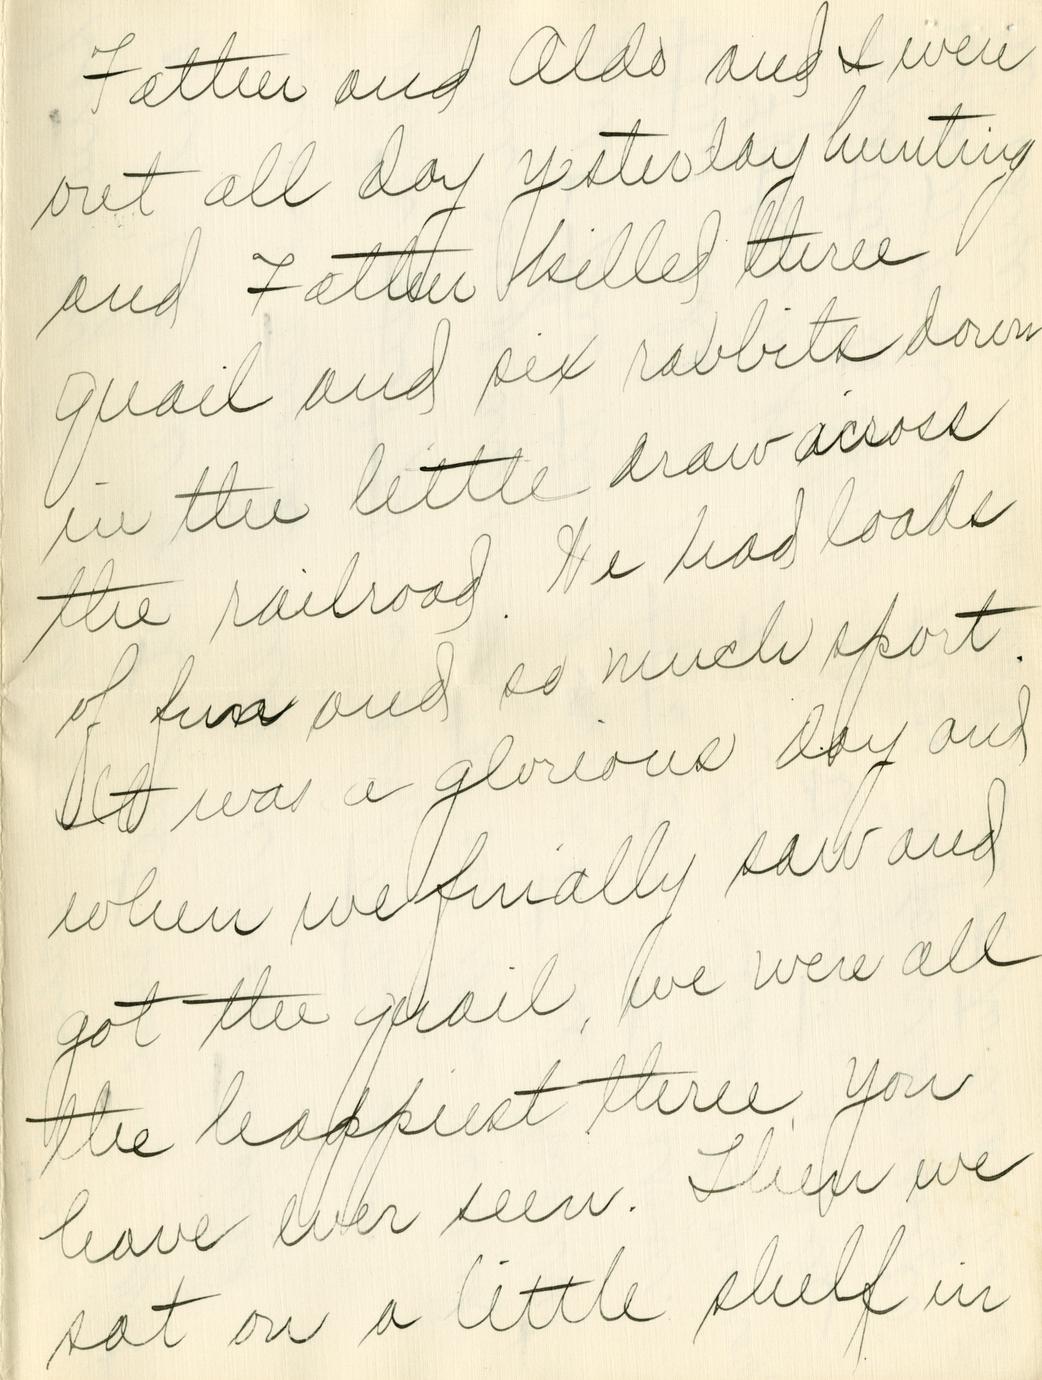 Father and Aldo and I were
out all day yesterday hunting
and Father killed three
quail and six rabbits down
in the little draw across
the railroad. He had loads
of fun and so much sport.
It was a glorious day and
when we finally saw and
got the quail, we were all
the happiest three you
have ever seen. Then we
sat on a little shelf in